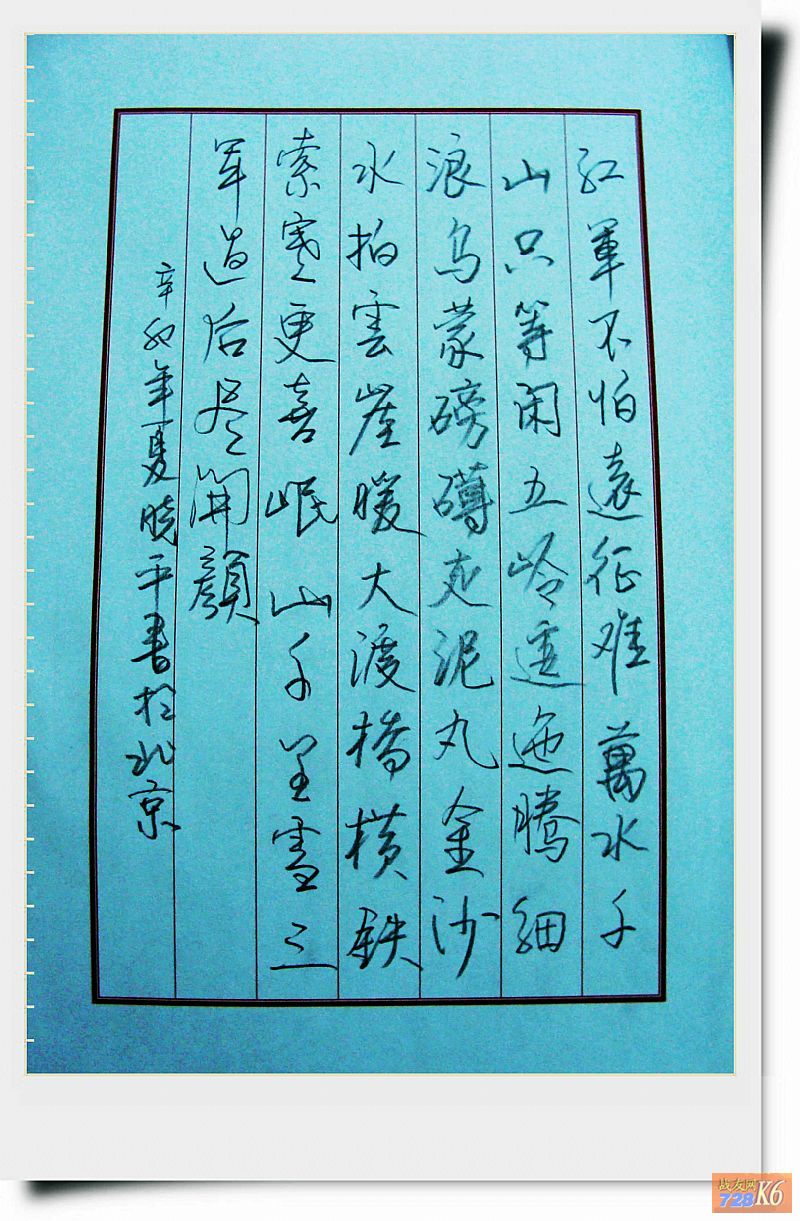 紅軍不怕遠征难萬水千
山只等闲五岭逶迤腾细
浪乌蒙磅礴走泥丸金沙
水拍雲崖暖大渡橋横铁
索寒更喜岷山千里雪三
军过后尽開顏
辛卯年夏晓平書于北京
战友网
728K6